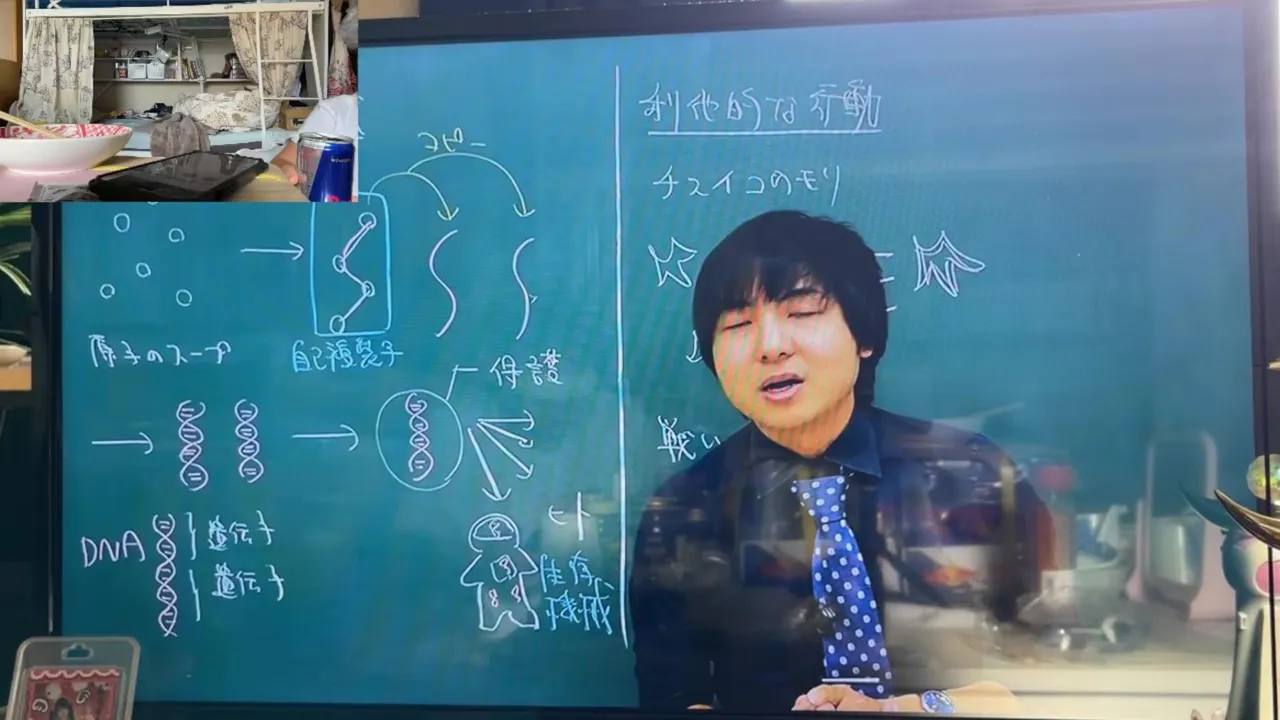 コピー
原子のスープ
自己複製子
保護
DNA
遺伝子
遺伝子
ヒト
生存
機械
利他的な行動
チスイコウモリ
戦い